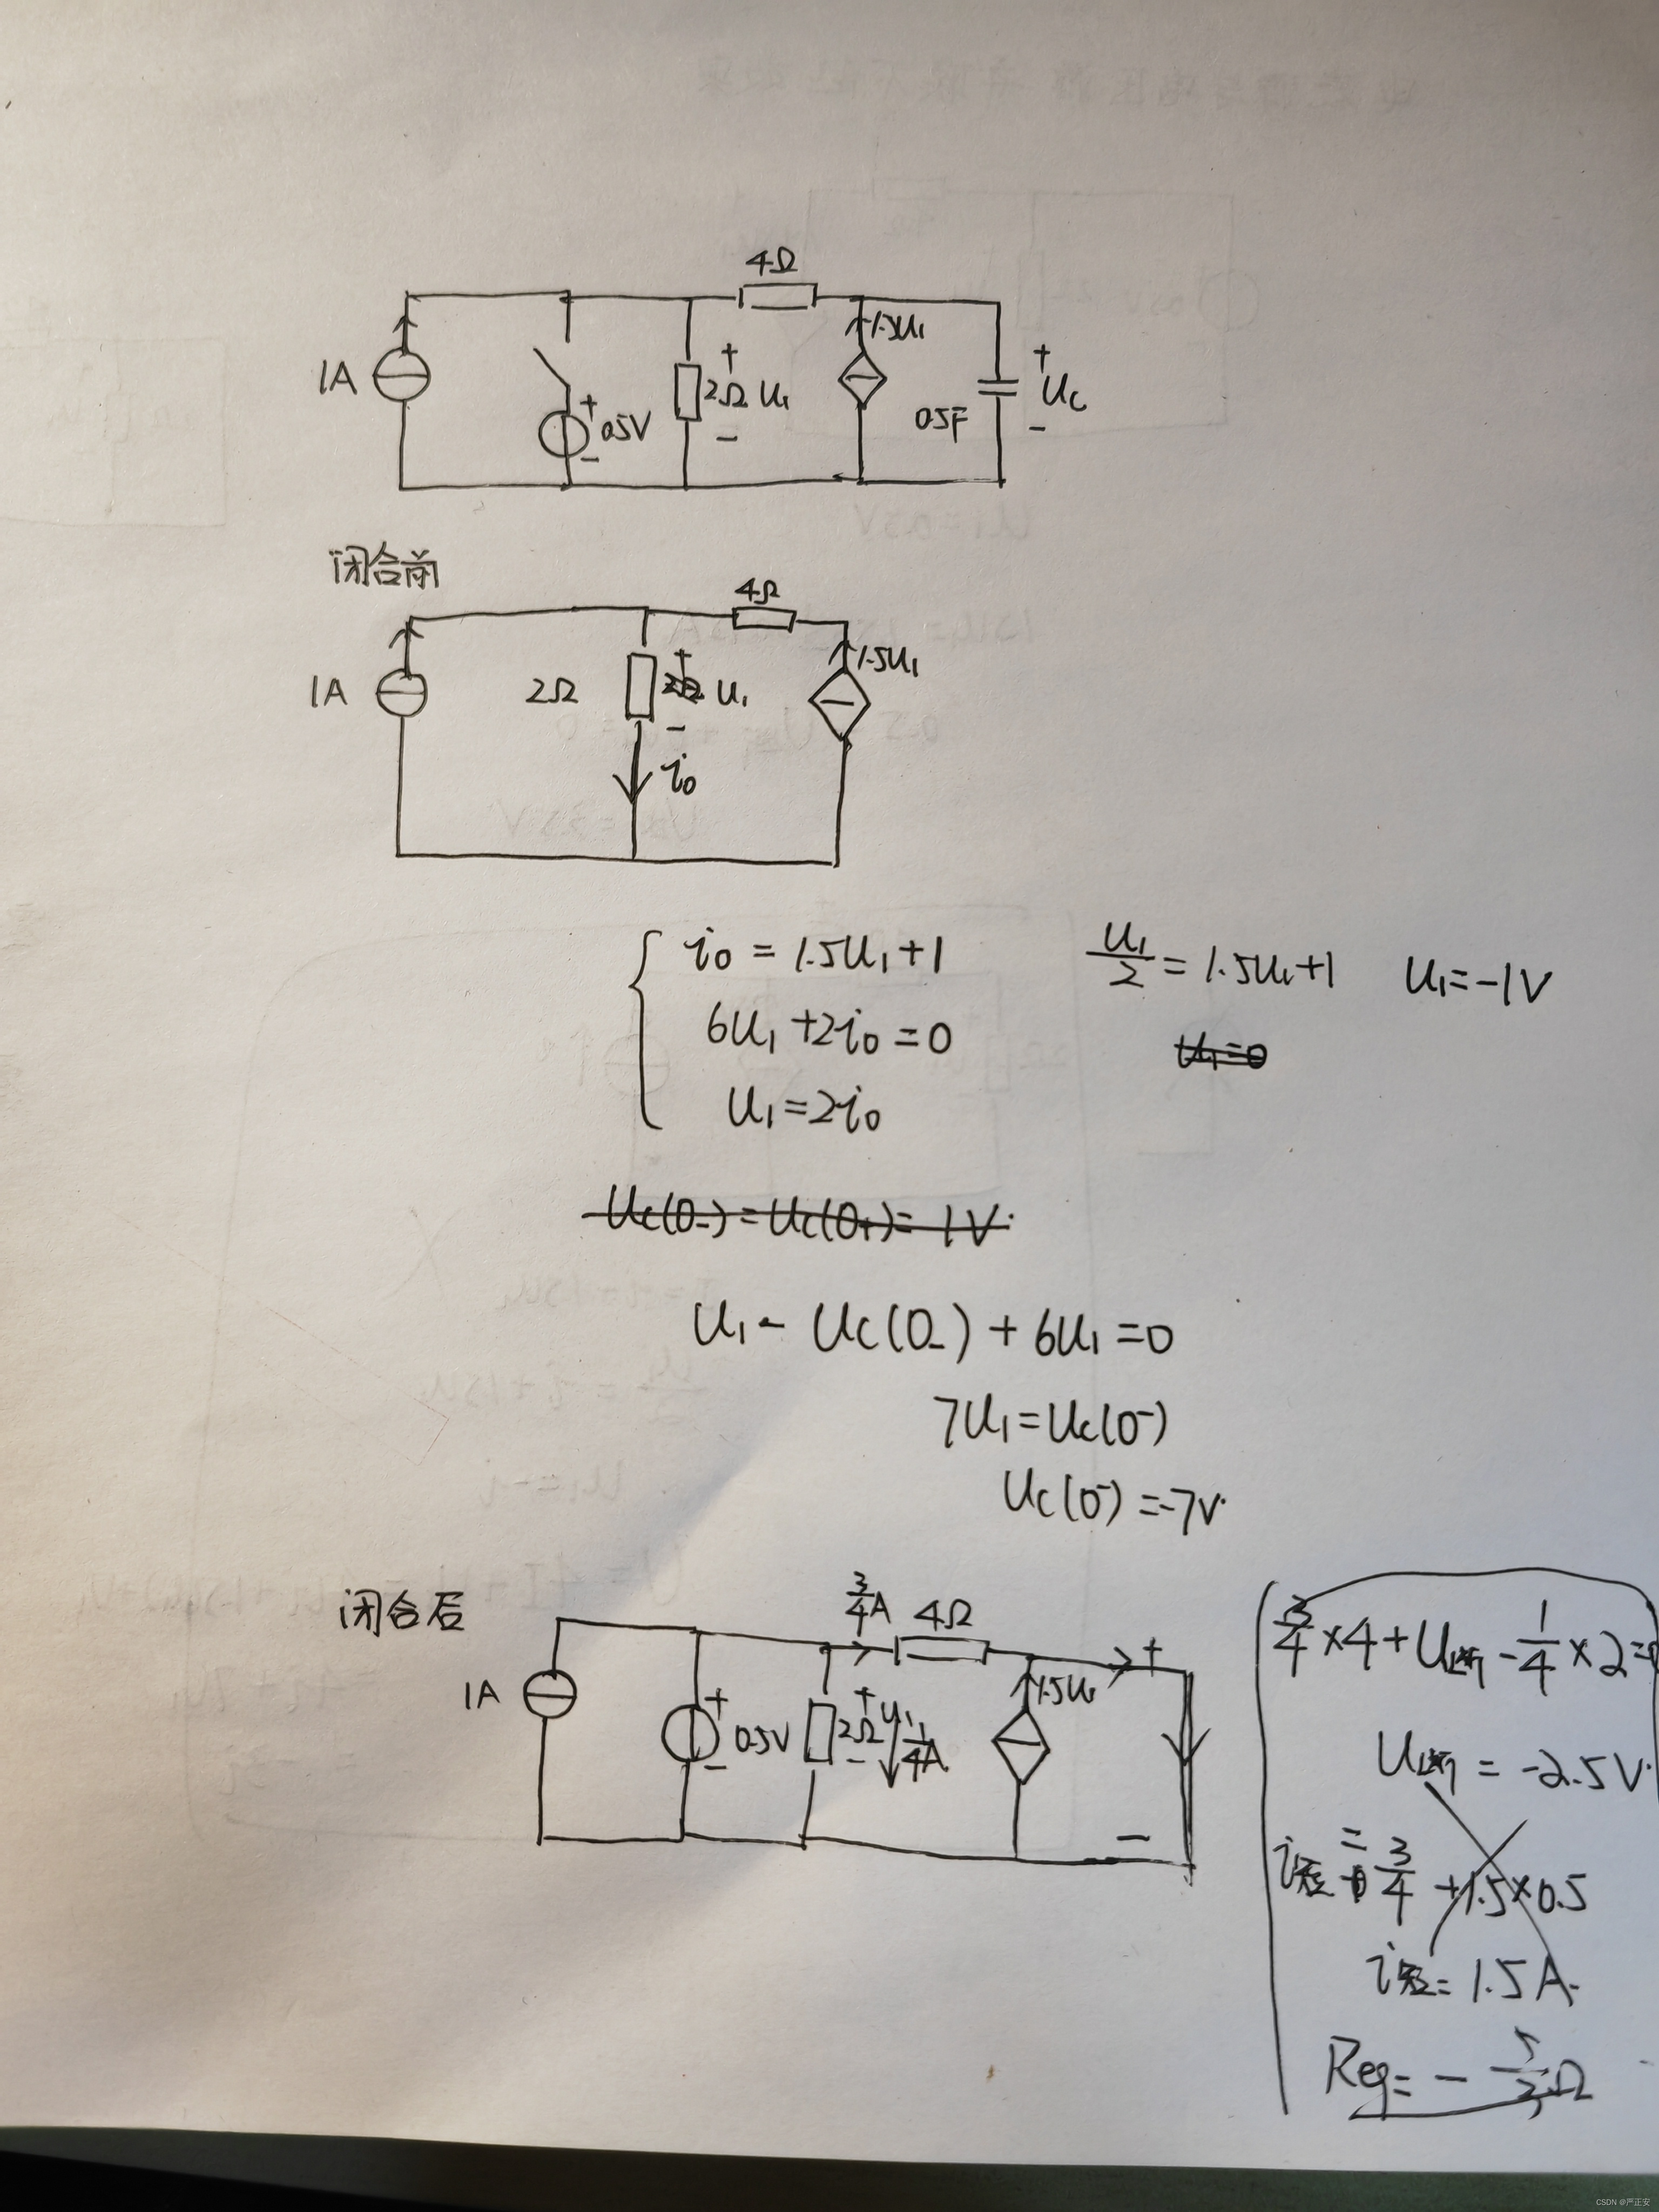 4Ω
1A
0.5V
2Ω
+
U₁
-
1.5U₁
0.5F
+
Uc
-
闭合前
4Ω
1A
2Ω
+
U₁
-
1.5U₁
i₀
i₀ = 1.5U₁+1
U₁/2 = 1.5U₁+1
U₁=-1V
6U₁+2i₀=0
U₁=0
U₁=2i₀
Uc(0₋)=Uc(0₊)=1V.
U₁- Uc(0₋)+6U₁=0
7U₁=Uc(0⁻)
Uc(0⁻)=-7V.
闭合后
3/4A
4Ω
1A
+
0.5V
-
2Ω
+
U₁
-
1/4A
1.5U₁
+
-
3/4×4+U断-1/4×2=0
U断=-2.5V.
i短=3/4+1.5×0.5
i短=1.5A.
Req=-5/3Ω
CSDN @严正安